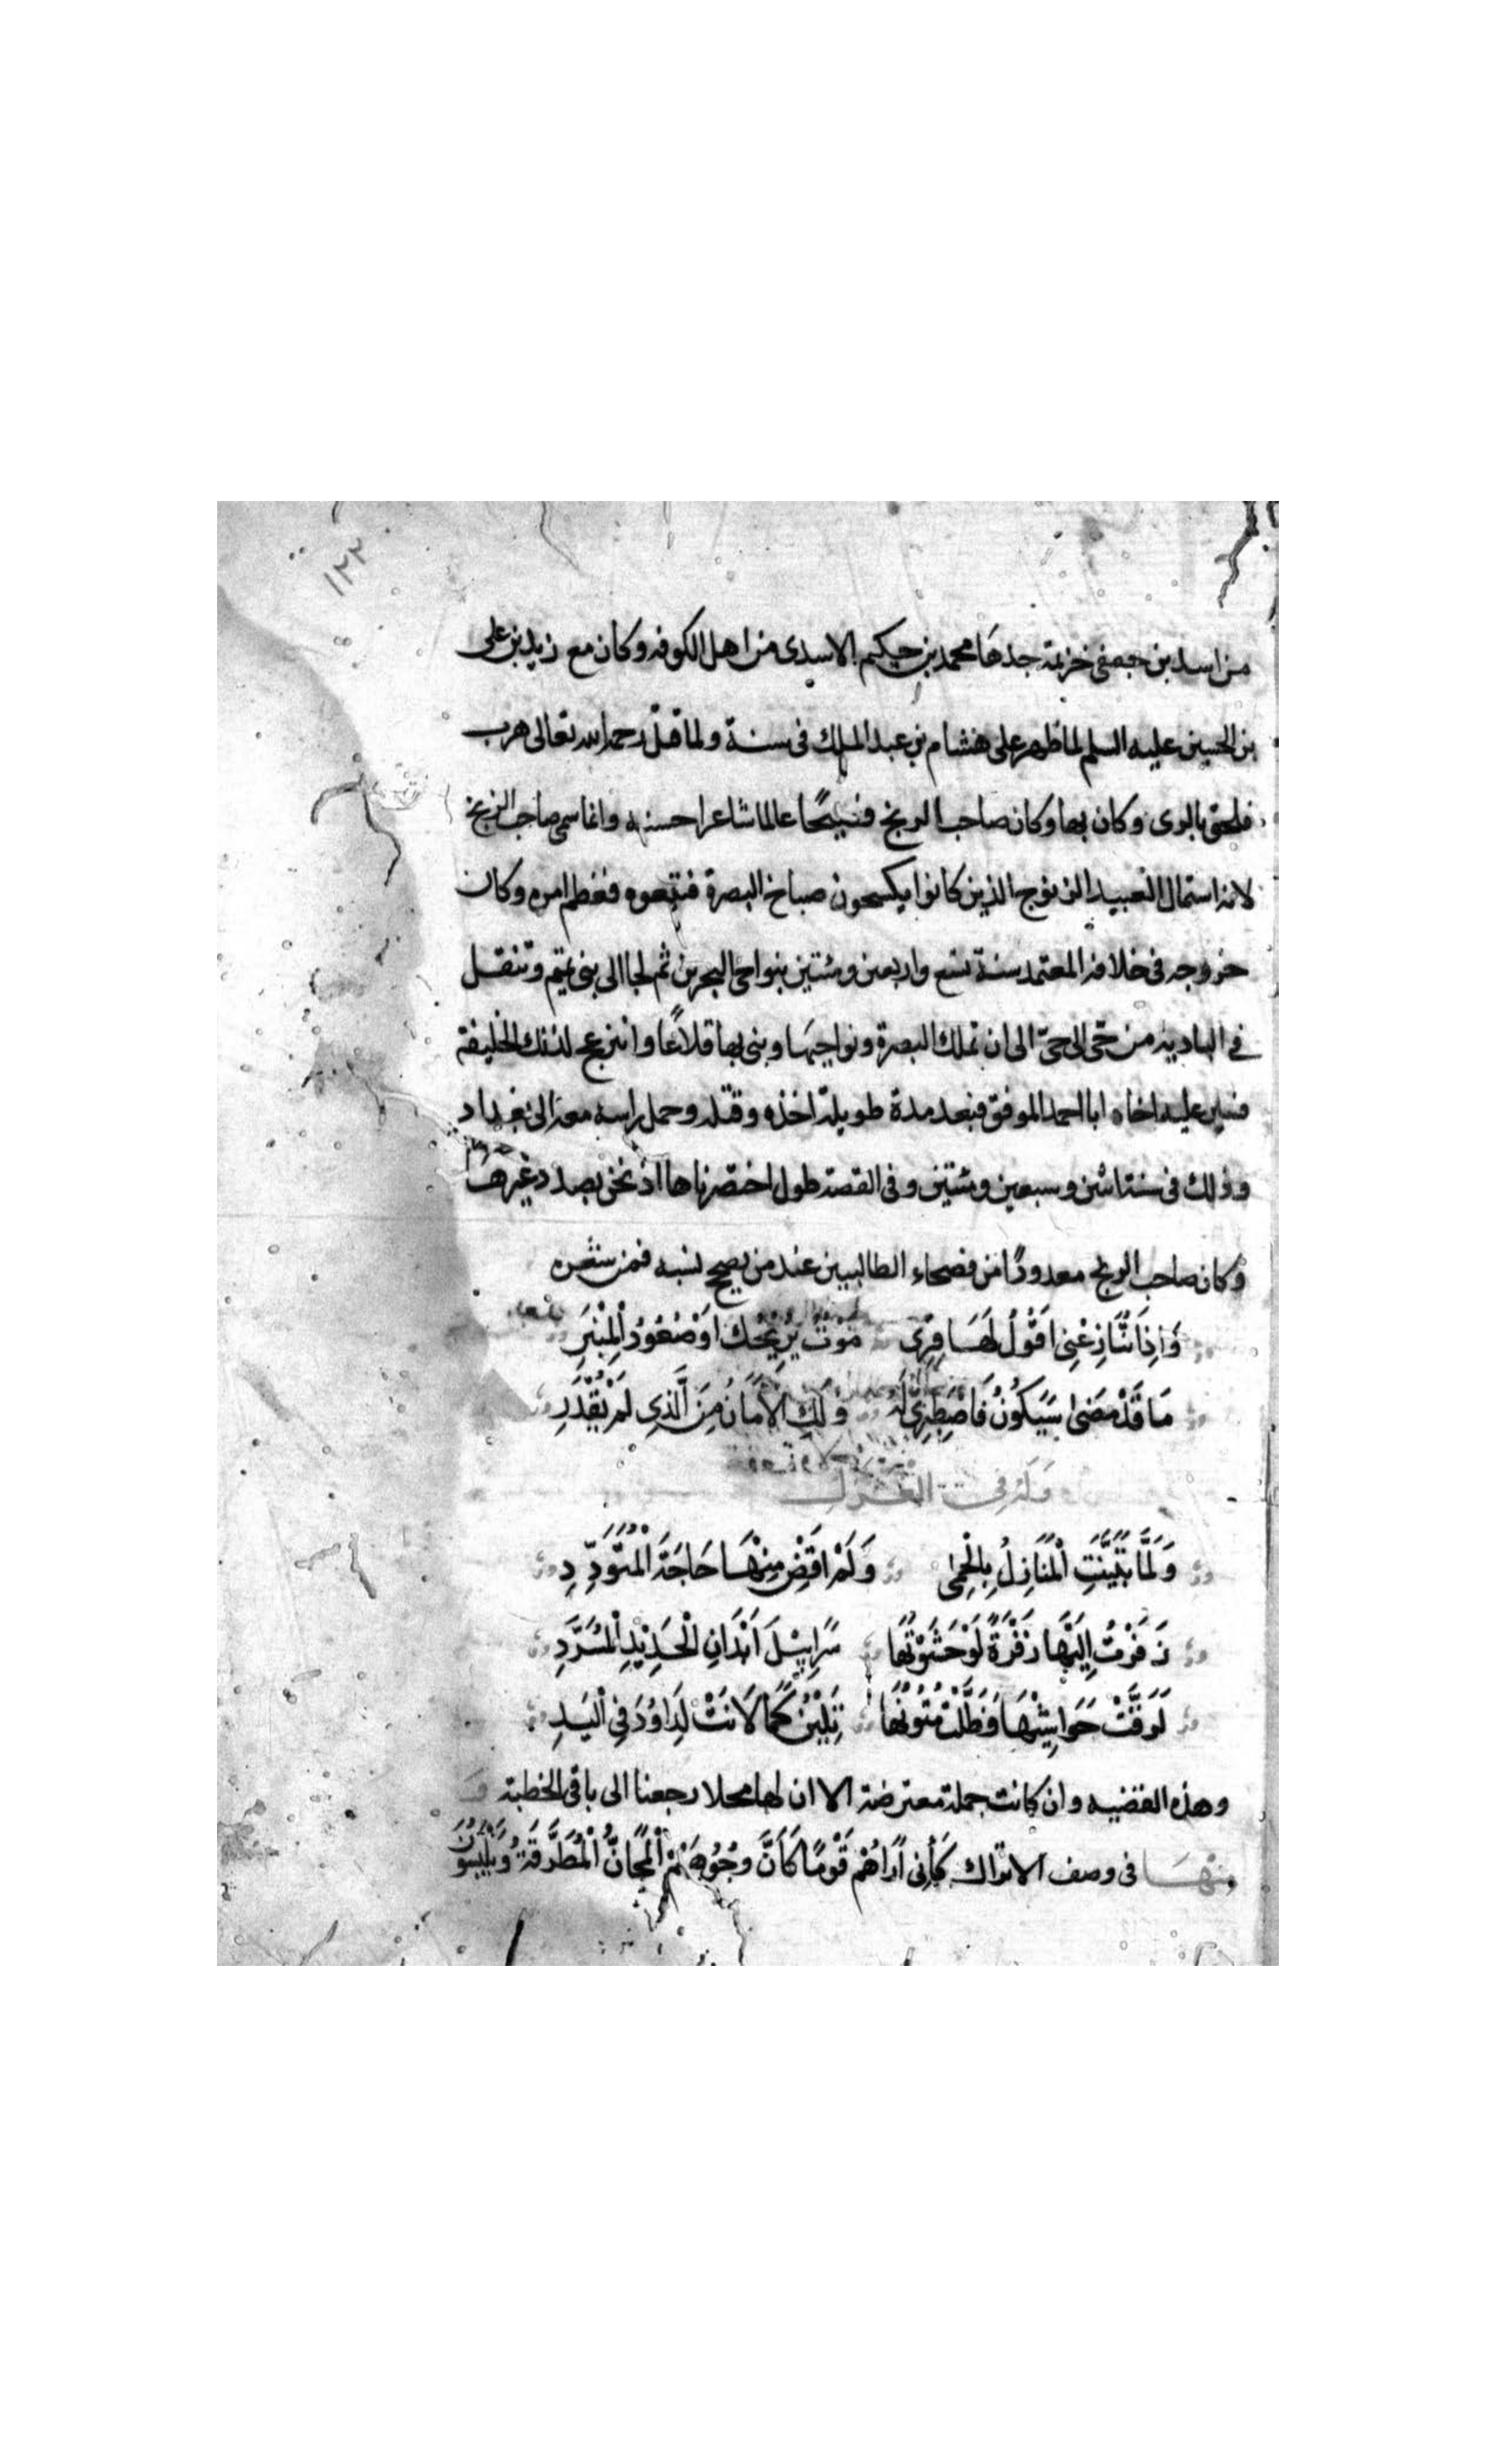 ١٢٢
من اسد بن خزيمة جدها محمد بن حكيم الاسدى من اهل الكوفه وكان مع زيد بن على
بن الحسين عليه السلم لما ظهر على هشام بن عبد الملك فى سنة ولما قتل رحمه الله تعالى هرب
فلحق بالرى وكان بها وكان صاحب الزنج فصيحًا عالما شاعرا وانما سمى صاحب الزنج
لانه استمال العبيد الزنوج الذين كانوا يكسحون صباخ البصرة فتبعوه فعظم امره وكان
خروجه فى خلافه المعتمد سنة تسع واربعين ومئتين بنواحى البحرين ثم لجا الى بنى تميم وتنقل
فى الباديه من حَى الى حَىّ الى ان تملك البصرة ونواحيها وبنى بها قلاعًا وانزعج لذلك الخليفة
فسير عليه اخاه ابا احمد الموفق فبعد مدة طويلة اخذه وقتله وحمل راسه معه الى بغداد
وذلك فى سنة اثنين وسبعين ومئتين وفى القصة طول اختصرناها اذ نحن بصدد غيرها
وكان صاحب الزنج معدودًا من فصحاء الطالبيين عند من يصحح نسبه فمن شعره
وَاِذَا تُنَازِعُنِى اَقُولُ لَهَا قِرِى مَوْتٌ يُرِيحُكِ اَوْ صُعُودُ الْمِنْبَرِ
مَا قَدْ مَضَى سَيَكُونُ فَاصْطَبِرِى لَهُ وَلَكِ الْاَمَانُ مِنَ الَّذِى لَمْ يُقْدَرِ
وَلَه فى الغزل
وَلَمَّا تَبَيَّنَتِ الْمَنَازِلُ بِالْحِمَى وَلَمْ اَقْضِ مِنْهَا حَاجَةَ الْمُتَوَدِّدِ
زَفَرْتُ اِلَيْهَا زَفْرَةً لَوْ حَشَوْتُهَا سَرَابِيلَ اَبْدَانِ الْحَدِيْدِ الْمُسَرَّدِ
لَرَقَّتْ حَوَاشِيْهَا وَظَلَّتْ مُتُونُهَا تَلِيْنُ كَمَا لَانَتْ لِدَاوُدَ فِى الْيَدِ
وهذه القضيه وان كانت جملة معترضة الا ان لها محلا رجعنا الى باقى الخطبة
ومنها فى وصف الاتراك كَاَنِّى اَرَاهُمْ قَوْمًا كَاَنَّ وُجُوهَهُمْ الْمَجَانُّ الْمُطَرَّقَةُ وَيَلْبَسُونَ